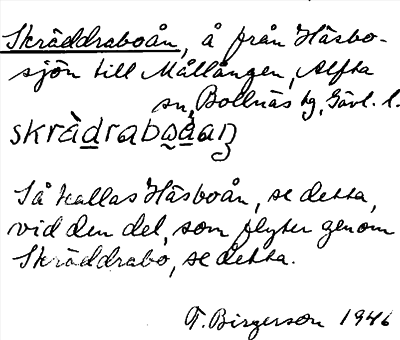 Skräddraboån, å från Häsbo-
sjön till Mållången, Alfta
sn, Bollnäs tg, Gävl. l.
skràdrabo̰åaŋ
Så kallas Häsboån, se detta,
vid den del, som flyter genom
Skräddrabo, se detta.
T. Birgerson 1946